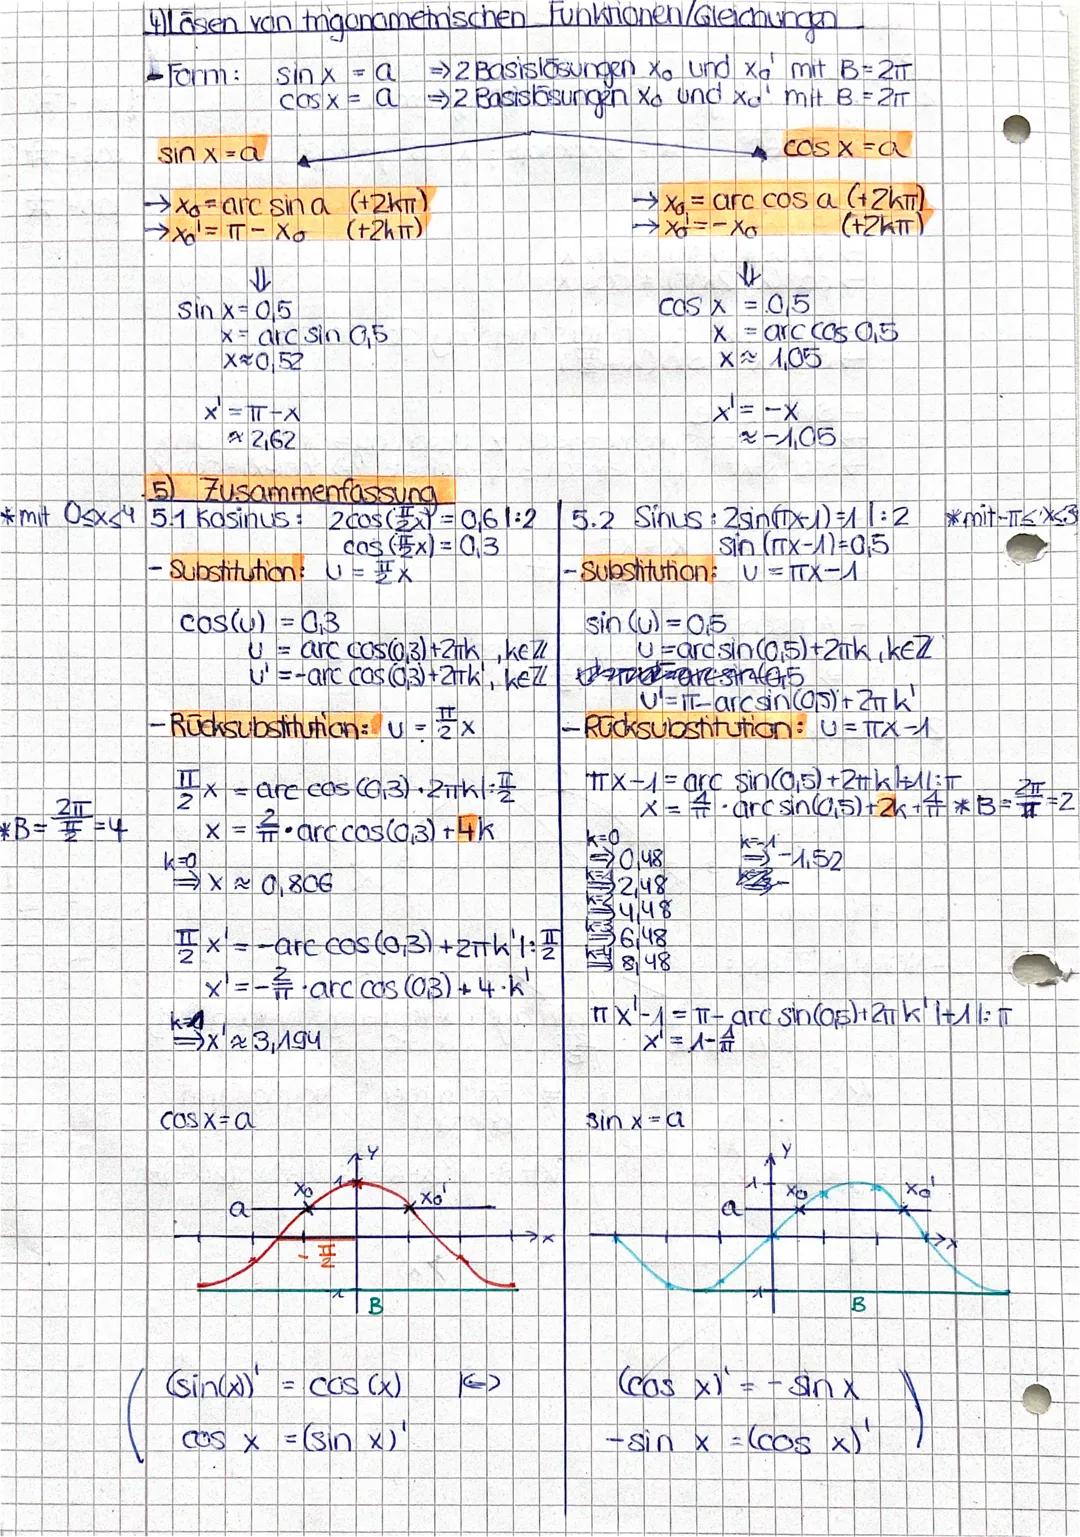 4) Lösen von trigonometrischen Funktionen/Gleichungen
- Form: sin x = a ⇒ 2 Basislösungen x₀ und x₀' mit B = 2π
cos x = a ⇒ 2 Basislösungen x₀ und x₀' mit B = 2π
sin x = a
→ x₀ = arc sin a (+2kπ)
→ x₀' = π - x₀ (+2kπ)
⇓
sin x = 0,5
x = arc sin 0,5
x ≈ 0,52
x' = π - x
≈ 2,62
cos x = a
→ x₀ = arc cos a (+2kπ)
→ x₀' = - x₀ (+2kπ)
⇓
cos x = 0,5
x = arc cos 0,5
x ≈ 1,05
x' = -x
≈ -1,05
5) Zusammenfassung
*mit 0≤x≤4 5.1 Kosinus: 2cos(π/2 x) = 0,6 |:2
cos(π/2 x) = 0,3
- Substitution: u = π/2 x
cos(u) = 0,3
u = arc cos(0,3)+2πk, k∈ℤ
u' = -arc cos(0,3)+2πk', k∈ℤ
- Rücksubstitution: u = π/2 x
π/2 x = arc cos(0,3)·2πk |:π/2
*B = 2π/(π/2) = 4
x = 2/π · arc cos(0,3) + 4k
k=0
⇒ x ≈ 0,806
π/2 x' = -arc cos(0,3)+2πk' |:π/2
x' = -2/π · arc cos(0,3) + 4·k'
⇒ x' ≈ 3,194
5.2 Sinus: 2sin(πx-1)=1 |:2 *mit -π≤x≤3
sin(πx-1)=0,5
- Substitution: u = πx-1
sin(u) = 0,5
u = arc sin(0,5)+2πk, k∈ℤ
u' = π-arcsin(0,5)+2πk'
- Rücksubstitution: u = πx-1
πx-1 = arc sin(0,5)+2πk |+1 |:π
x = 1/π · arc sin(0,5)+2k+1/π *B = 2π/π = 2
k=0
⇒ 0,48
⇒ 2,48
⇒ 4,48
⇒ 6,48
8,48
k=-1
⇒ -1,52
πx'-1 = π- arc sin(0,5)+2πk' |+1 |:π
x' = 1-1/π
cos x = a
y
1
x₀
x₀'
a
x
-π/2
-1
B
sin x = a
y
1
x₀
x₀'
a
x
-1
B
(sin(x))' = cos(x) |<->
cos x = (sin x)'
(cos x)' = - sin x
-sin x = (cos x)'